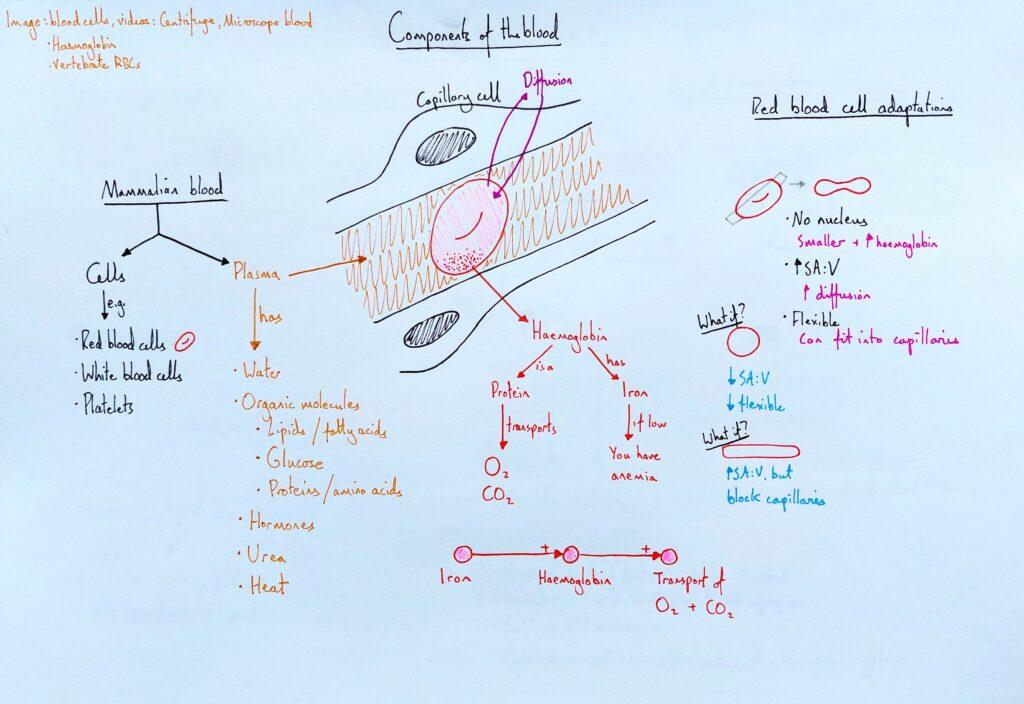 Image: blood cells, videos: Centrifuge, Microscope blood
· Haemoglobin
· Vertebrate RBCs
Components of the blood
Mammalian blood
Cells
e.g.
· Red blood cells
· White blood cells
· Platelets
Plasma
has
· Water
· Organic molecules
· Lipids / fatty acids
· Glucose
· Proteins/amino acids
· Hormones
· Urea
· Heat
Capillary cell
Diffusion
Haemoglobin
is a
has
Protein
Iron
transports
if low
O₂
CO₂
You have
anemia
+
+
Iron
Haemoglobin
Transport of
O₂ + CO₂
Red blood cell adaptations
· No nucleus
Smaller + ↑haemoglobin
· ↑SA:V
↑ diffusion
· Flexible
Can fit into capillaries
What if?
↓ SA:V
↓ flexible
What if?
↑SA:V, but
block capillaries